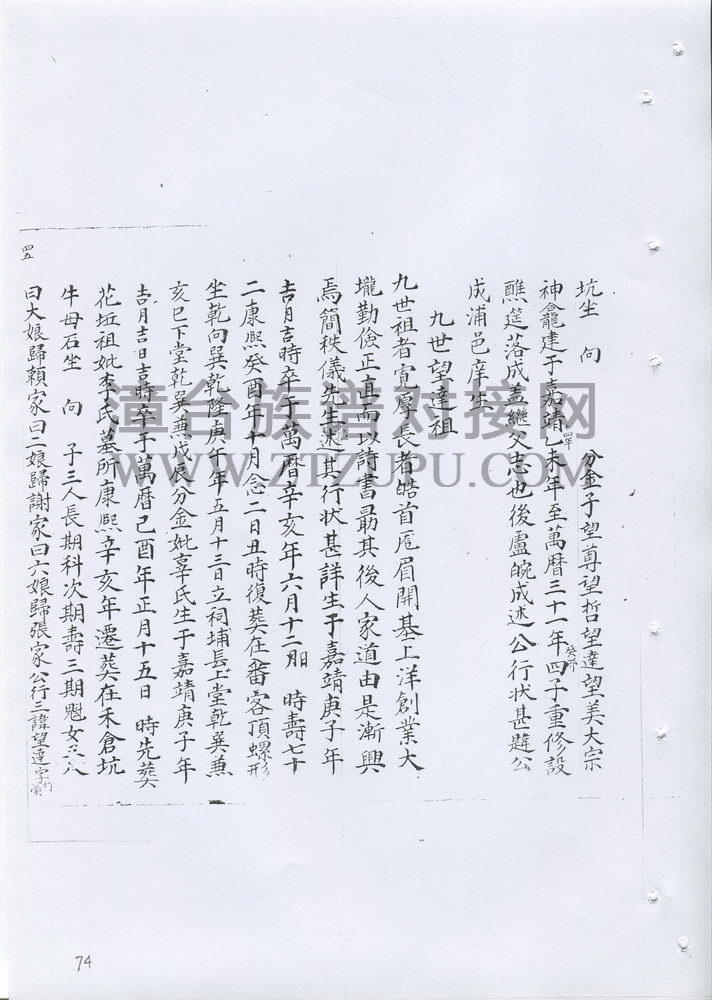 坑坐　向　　分金子望尊望哲望達望美大宗
神龕建于嘉靖乙未年至萬曆三十一年癸卯四子重修設
醮筵落成盖繼父志也後盧皖成述公行狀甚題公
成浦邑庠生
九世望達祖
九世祖者寬厚長者皓首厖眉開基上洋創業大
壠勤儉正直而以詩書勗其後人家道由是漸興
焉簡秩儀先生述其行状甚詳生于嘉靖庚子年
吉月吉時卒于萬曆辛亥年六月十二日　時壽七十
二康熙癸酉年十月念二日丑時復葵在番客頂螺形
坐乾向巽乾隆庚午年五月十三日立祠埔長上堂乾巽兼
亥巳下堂乾巽兼戌辰分金妣辜氏生于嘉靖庚子年
吉月吉日吉時卒于萬曆己酉年正月十五日　時先葵
花坵祖妣李氏墓所康熙辛亥年遷葵在禾倉坑
牛母石坐　向　子三人長期科次期壽三期魁女三人
曰大娘歸賴家曰二娘歸謝家曰六娘歸張家公行二諱望達字
四五
漳台族谱对接网
WWW.ZTZUPU.COM
74